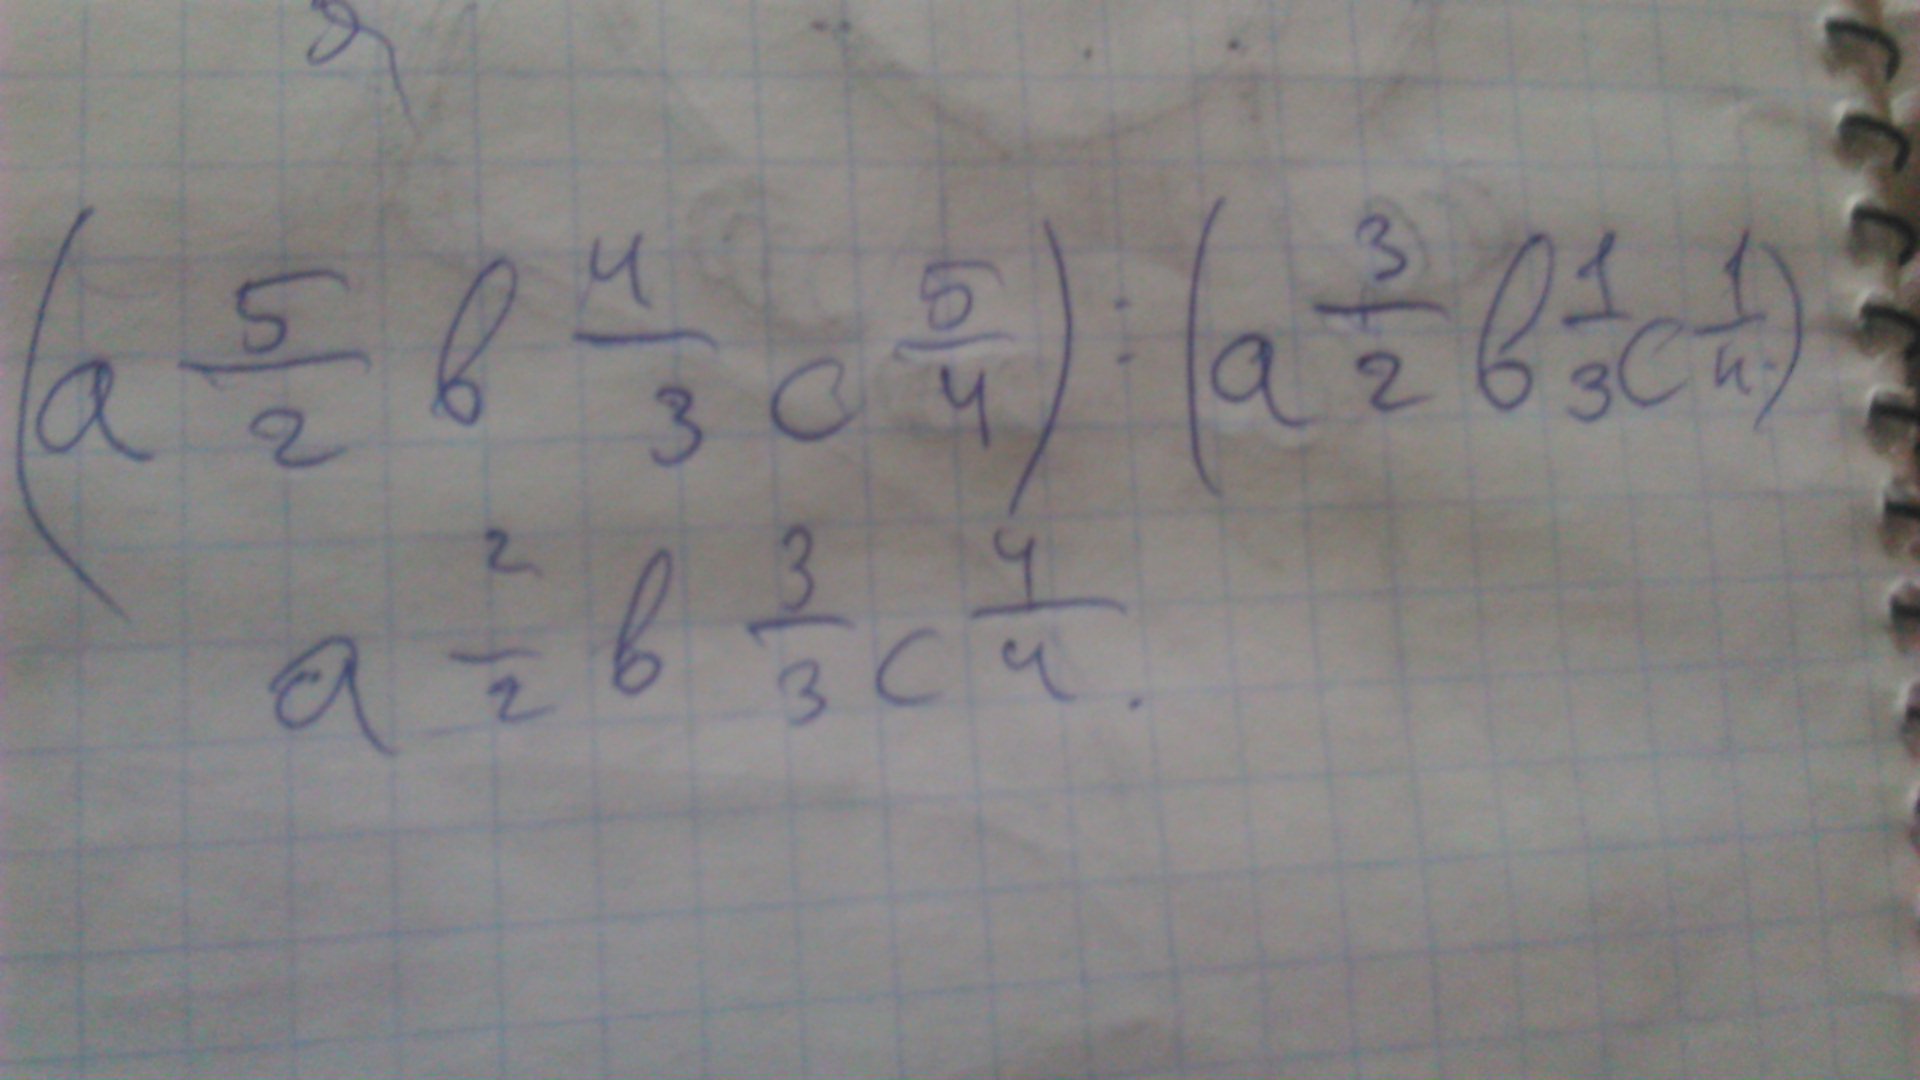 (a 5/2 в 4/3 c 5/4) : (a 3/2 в 1/3 c 1/4)
a 2/2 в 3/3 c 4/4.